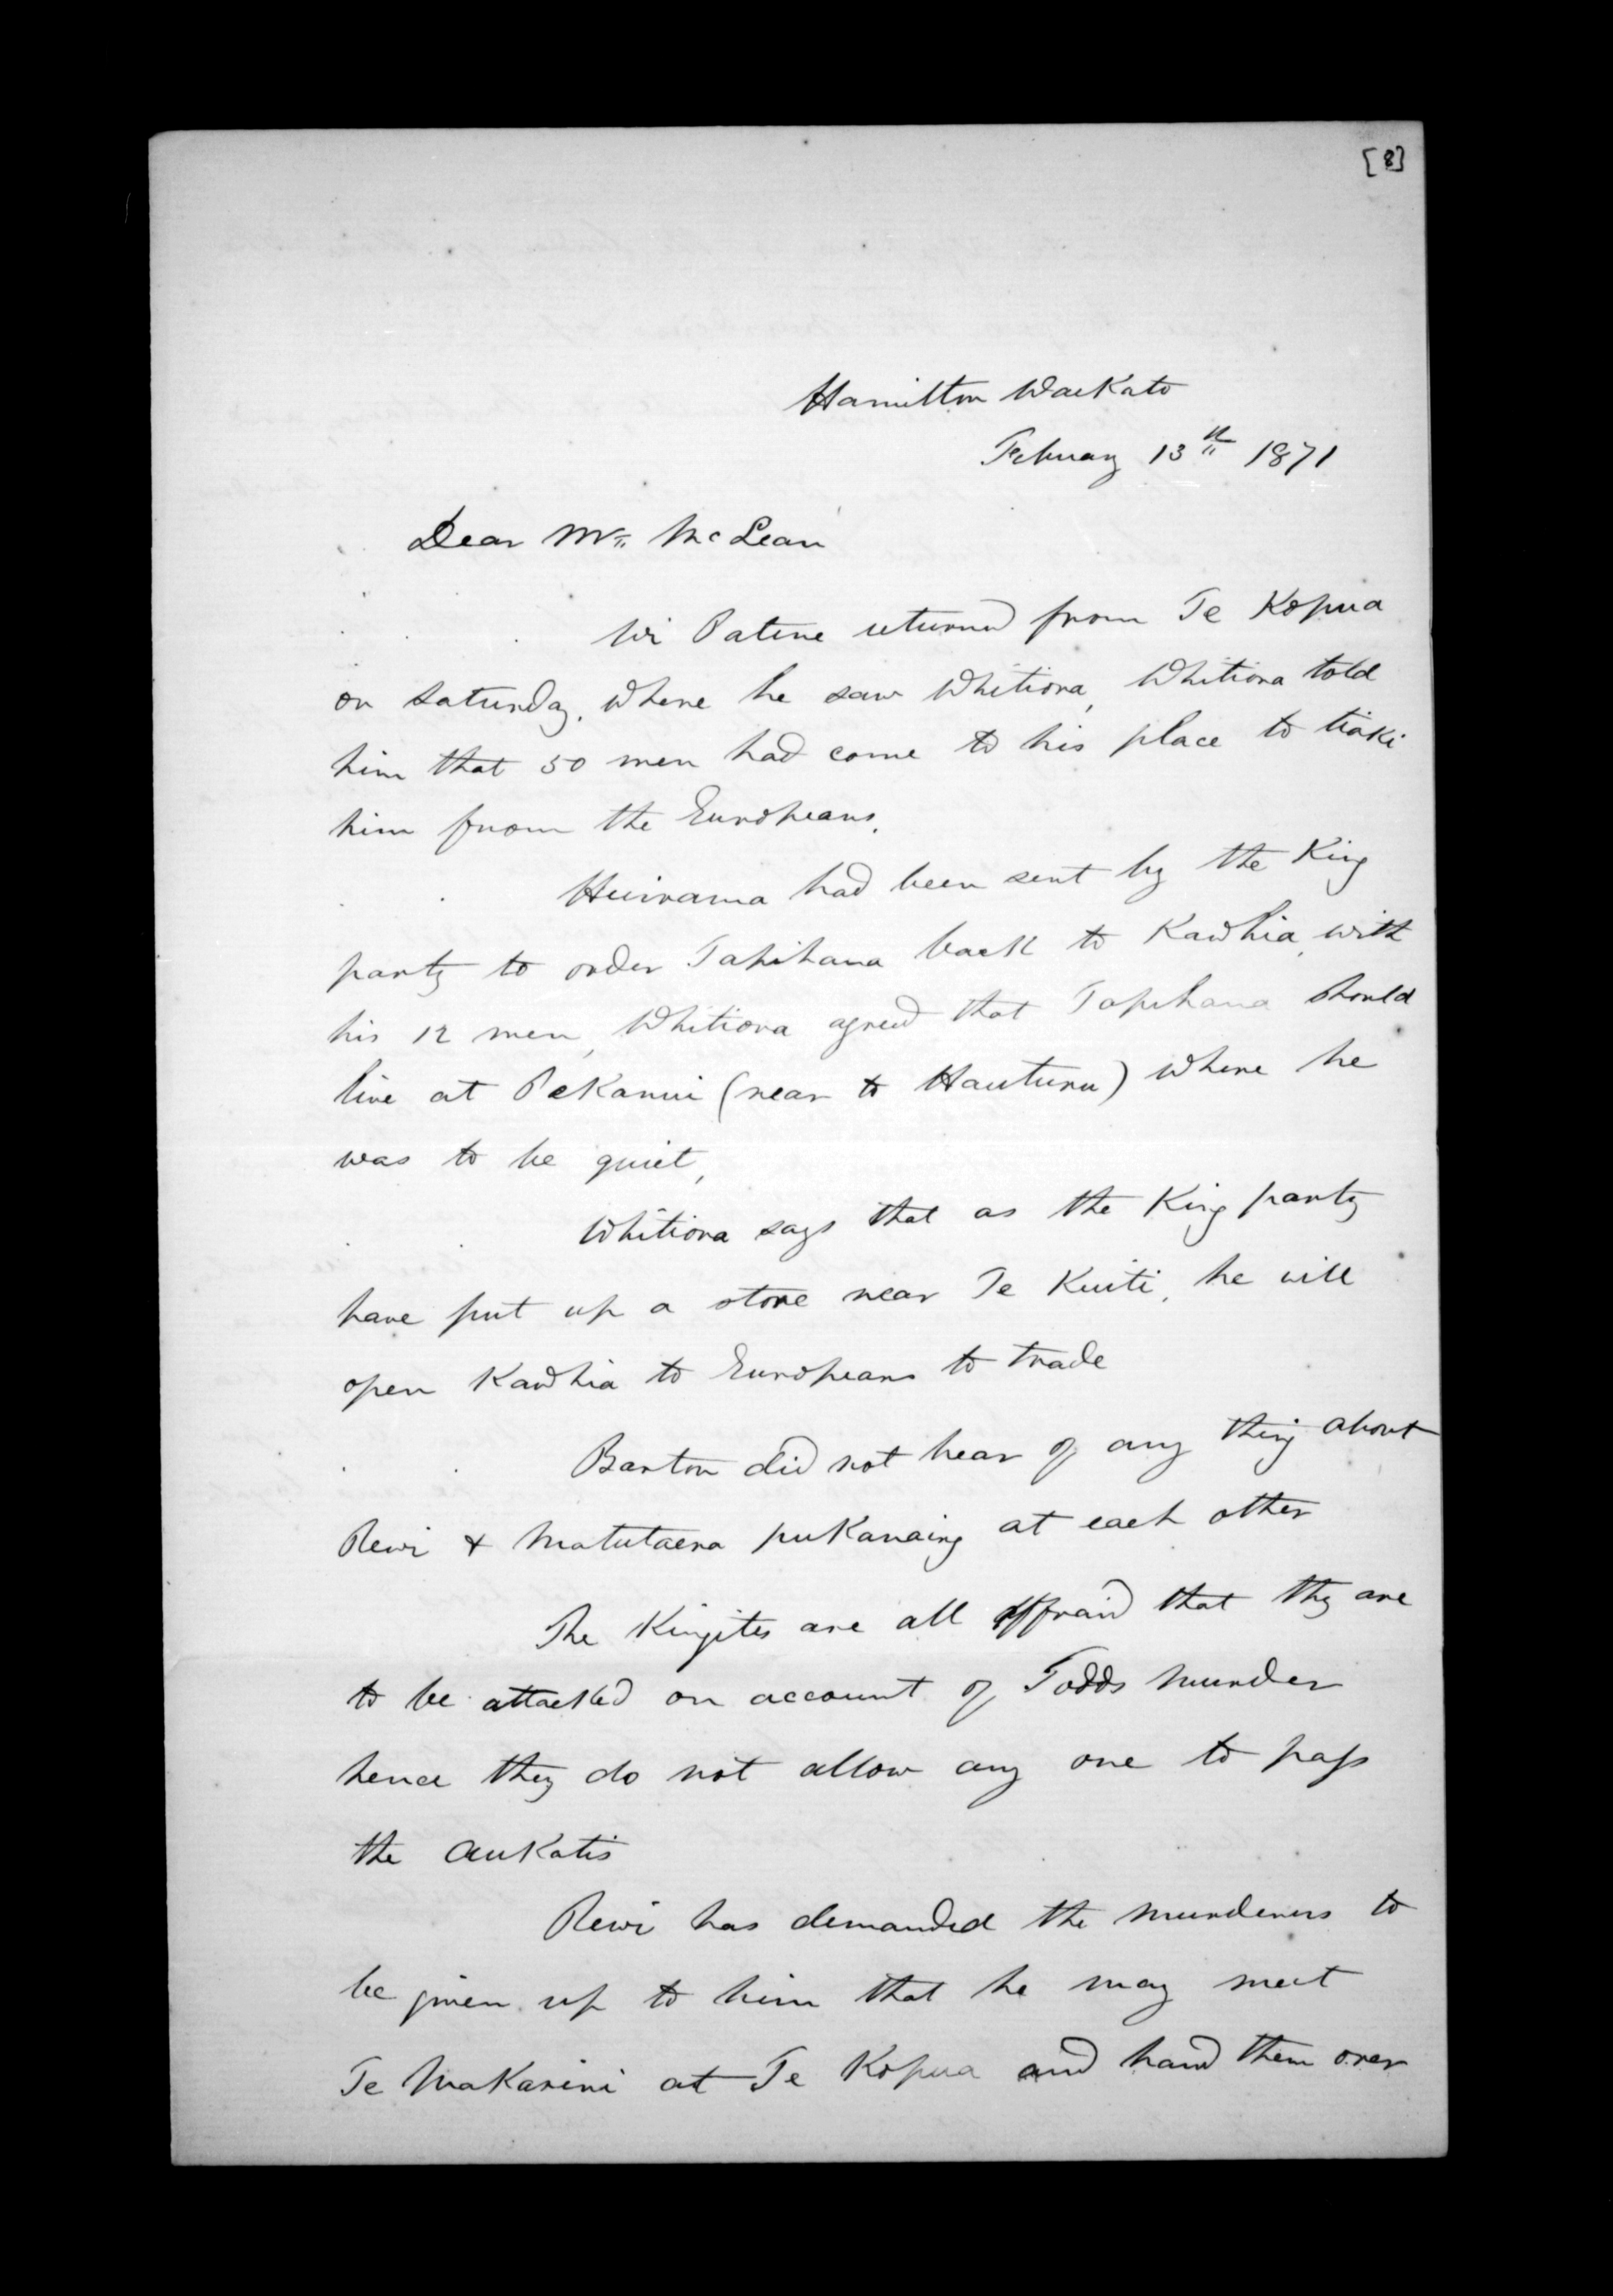 [8]
Hamilton Waikato
February 13th 1871
Dear Mr. McLean
Wi Patene returned from Te Kopua
on Saturday, where he saw Whitiora, Whitiora told
him that 50 men had come to his place to tiaki
him from the Europeans.
Huirama had been sent by the King
party to order Tapihana back to Kawhia, with
his 12 men, Whitiora agreed that Tapihana should
live at Pekanui (near to Hauturu) where he
was to be quiet,
Whitiora says that as the King party
have put up a store near Te Kuiti, he will
open Kawhia to Europeans to trade
Barton did not hear of any thing about
Rewi & Matutaera pukanaing at each other
The Kingites are all affraid that they are
to be attacked on account of Todds murder
hence they do not allow any one to pass
the aukatis
Rewi has demanded the murderers to
be given up to him that he may meet
Te Makarini at Te Kopua and hand them over